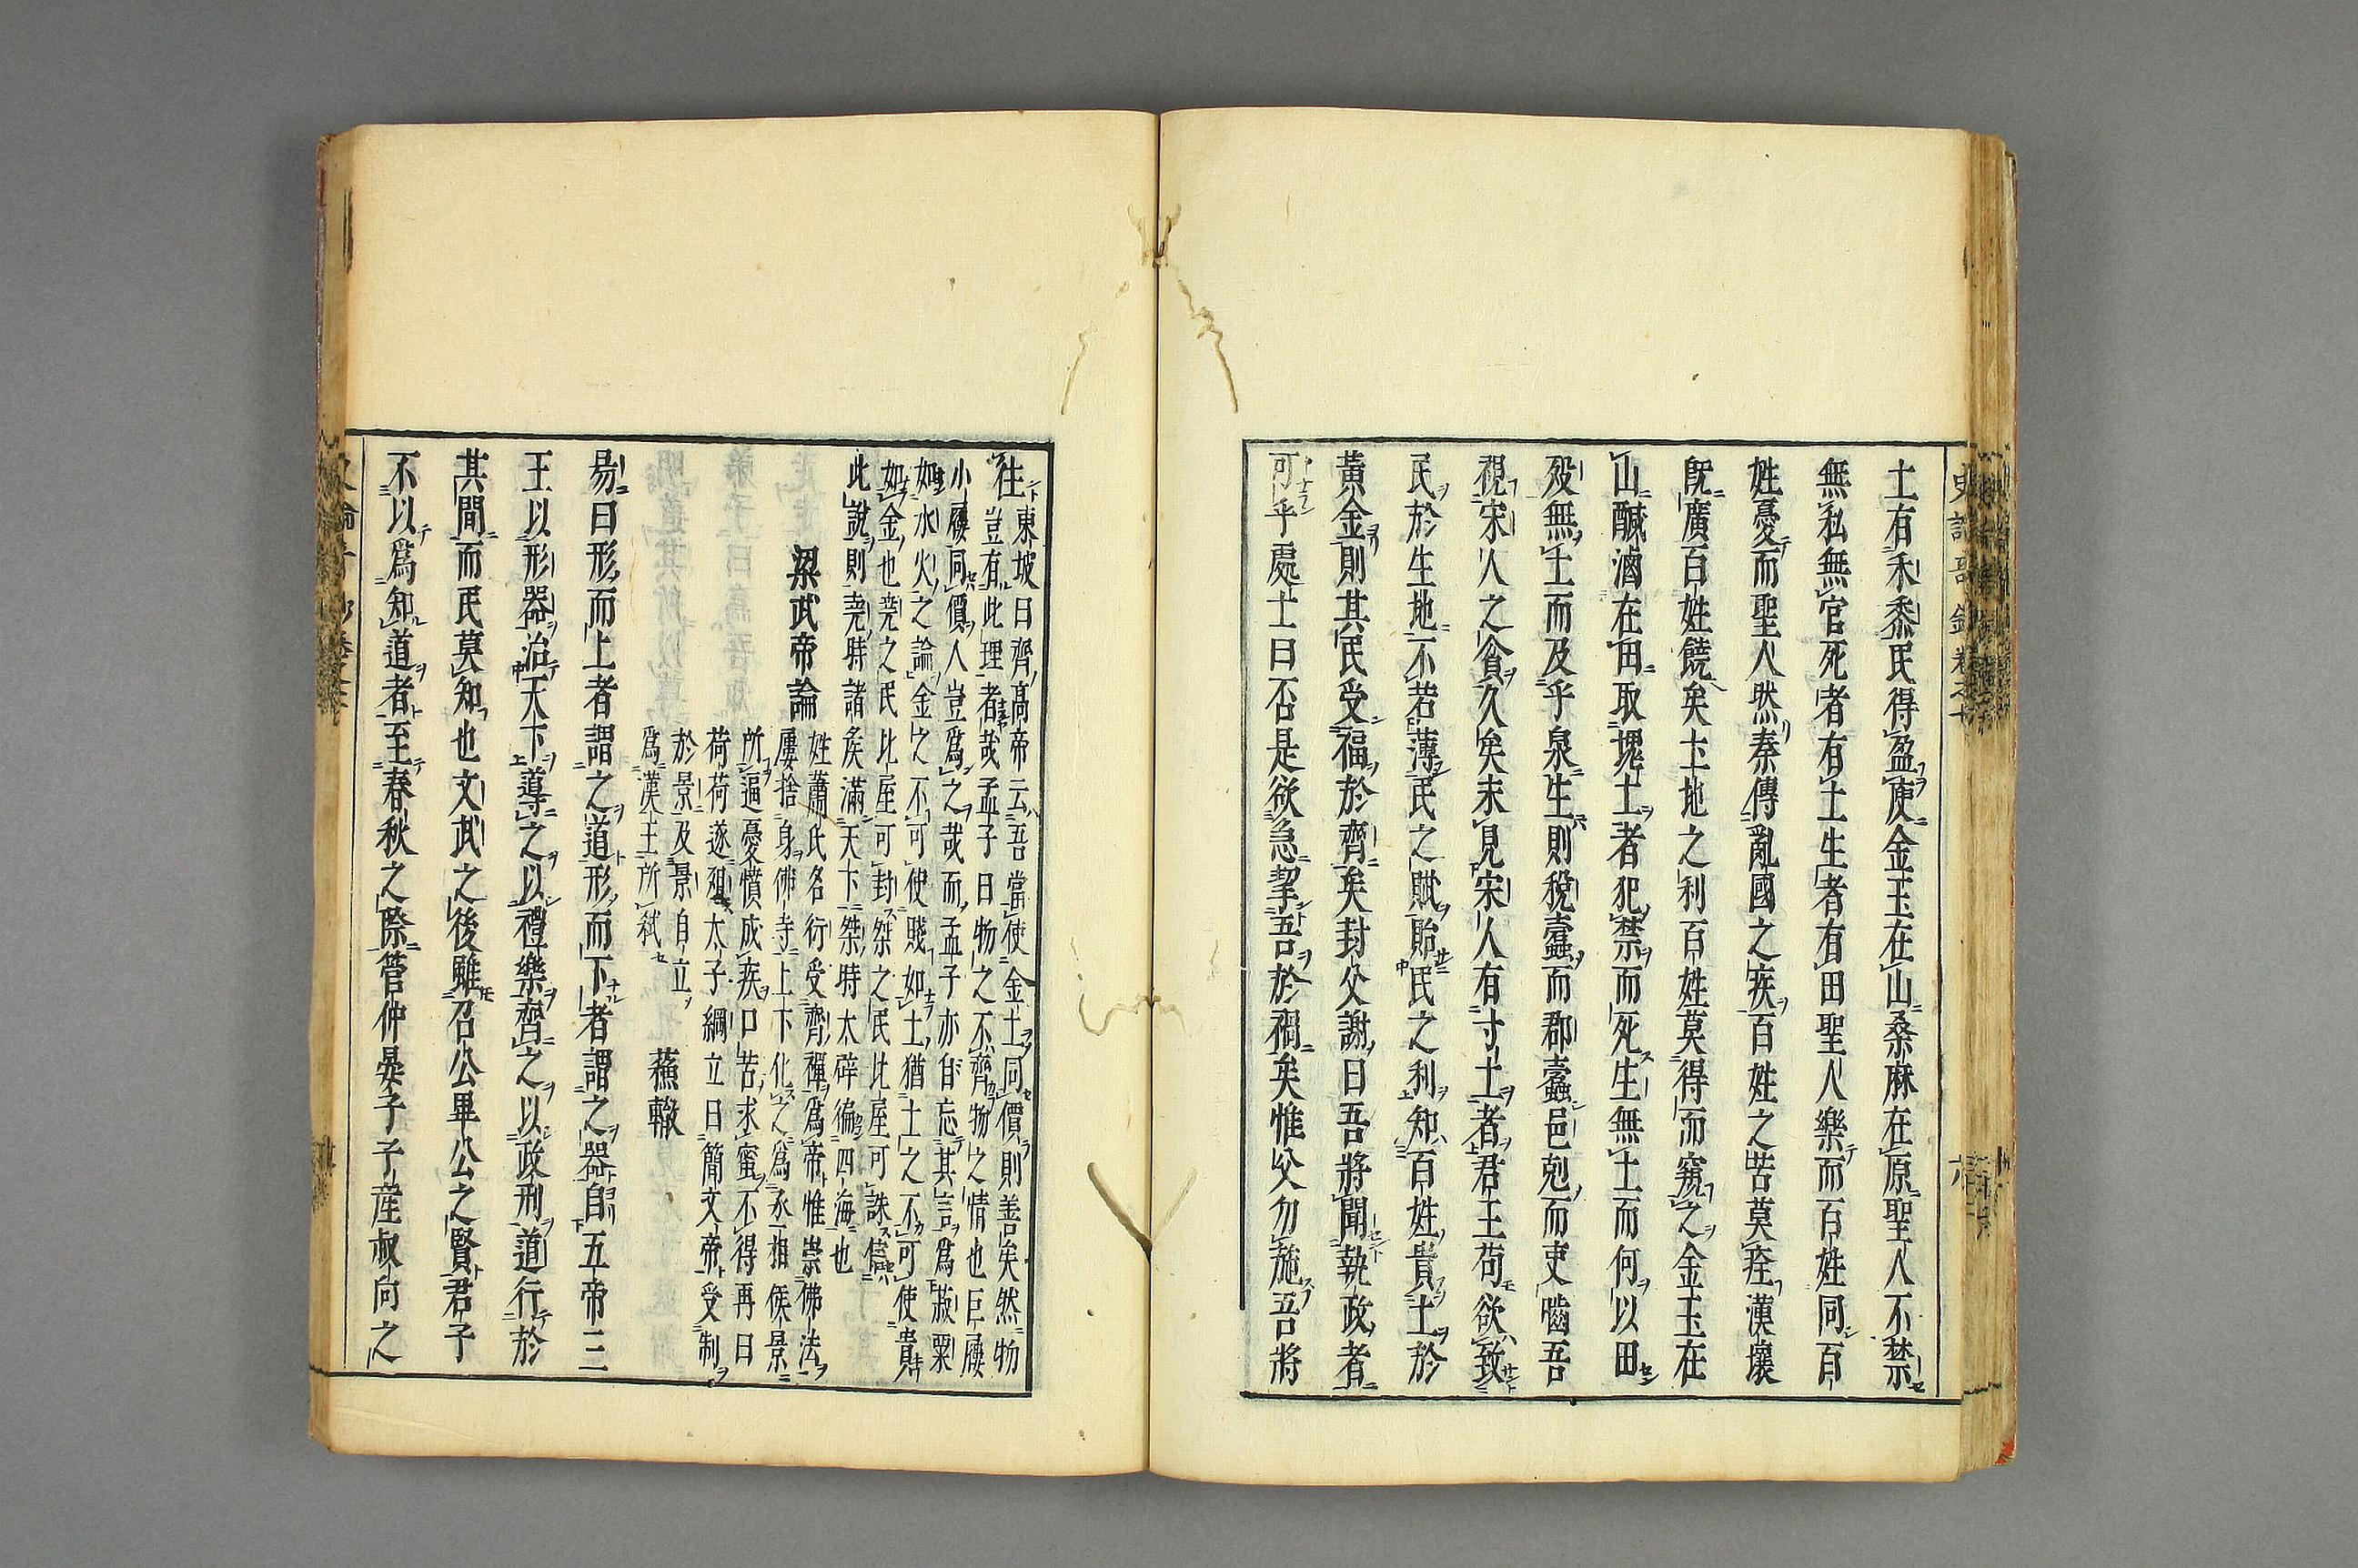 土有禾黍民得盈使金玉在山桑麻在原聖人不禁
無私無官死者有土生者有田聖人樂而百姓同百
姓憂而聖人然秦傳亂國之疾百姓之苦莫痊漢壤
既廣百姓饒矣土地之利百姓莫得而窺之金玉在
山鹹滷在田取塊土者犯禁而死生無土而何以田
歿無土而及乎泉生則稅蠹而郡蠹邑剋而吏嚙吾
視宋人之貧久矣未見宋人有寸土者君王苟欲致
民於生地不若薄民之賦貽民之利知百姓貴土於
黃金則其民受福於齊矣封父謝曰吾將聞執政者
可乎處士曰否是欲急挈吾於禍矣惟父勿施吾將
往東坡曰齊高帝云吾當使金土同價則善矣然物
豈有此理者哉孟子曰物之不齊物之情也巨屨
小屨同價人豈爲之哉而孟子亦自忘其言爲菽粟
如水火之論金之不可使賤如土猶土之不可使貴
如金也堯之民比屋可封桀之民比屋可誅信
此說則堯時諸矦滿天下桀時太辟徧四海也
梁武帝論
姓蕭氏名衍受齊禪爲帝惟崇佛法
屢捨身佛寺上下化之爲丞相侯景
所逼憂憤成疾口苦求蜜不得再曰
荷荷遂殂太子綱立曰簡文帝受制
於景及景自立
爲漢王所弑
蘓轍
易曰形而上者謂之道形而下者謂之器自五帝三
王以形器治天下導之以禮樂齊之以政刑道行於
其間而民莫知也文武之後雖召公畢公之賢君子
不以爲知道者至春秋之際管仲晏子子產叔向之